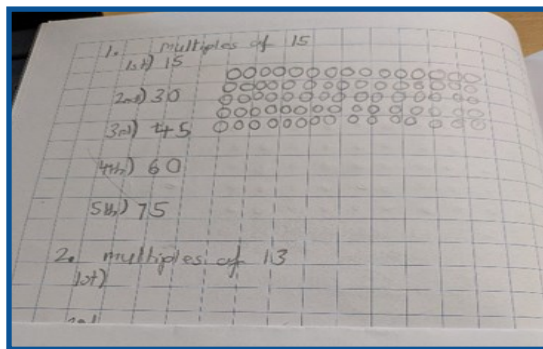 1. multiples of 15
1st) 15
2nd) 30
3rd) 45
4th) 60
5th) 75
2. multiples of 13
1st)